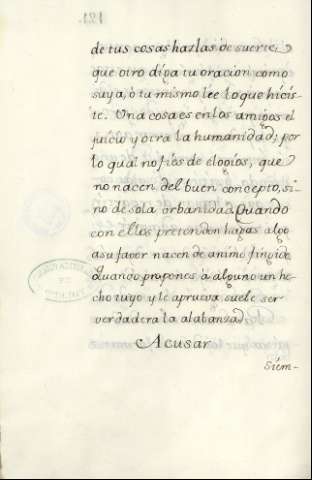 de tus cosas hazlas de suerte,
que otro diga tu oracion como
suya, ò tu mismo lee lo que hicis-
te. Una cosa es en los amigos el
juicio y otra la humanidad; por
lo qual no fies de elogios, que
no nacen del buen concepto, si-
no de sola orbanidad. Quando
con ellos pretenden hagas algo
a su favor nacen de animo fingido.
Quando propones à alguno un he-
cho tuyo y le aprueva suele ser
verdadera la alabanza.
Acusar
Siém-